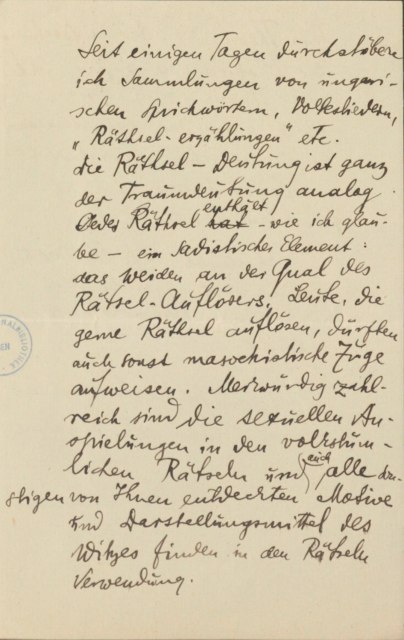 Seit einigen Tagen durchstübere
ich Sammlungen von ungari-
schen Sprichwörtern, Volksliedern,
„Räthsel-erzählungen" etc.
die Räthsel – Deutung ist ganz
der Traumdeutung analog.
Jedes Räthsel hat enthält – wie ich glau-
be – ein sadistisches Element:
das Weiden an der Qual des
Rätsel-Auflösers. Leute, die
gerne Räthsel auflösen, dürften
auch sonst masochistische Züge
aufweisen. Merkwürdig zahl-
reich sind die sexuellen An-
spielungen in den volkstüm-
lichen Rätseln und auch alle
von Ihnen entdeckten Motive
und Darstellungsmittel des
Witzes finden in den Rätseln
Verwendung.